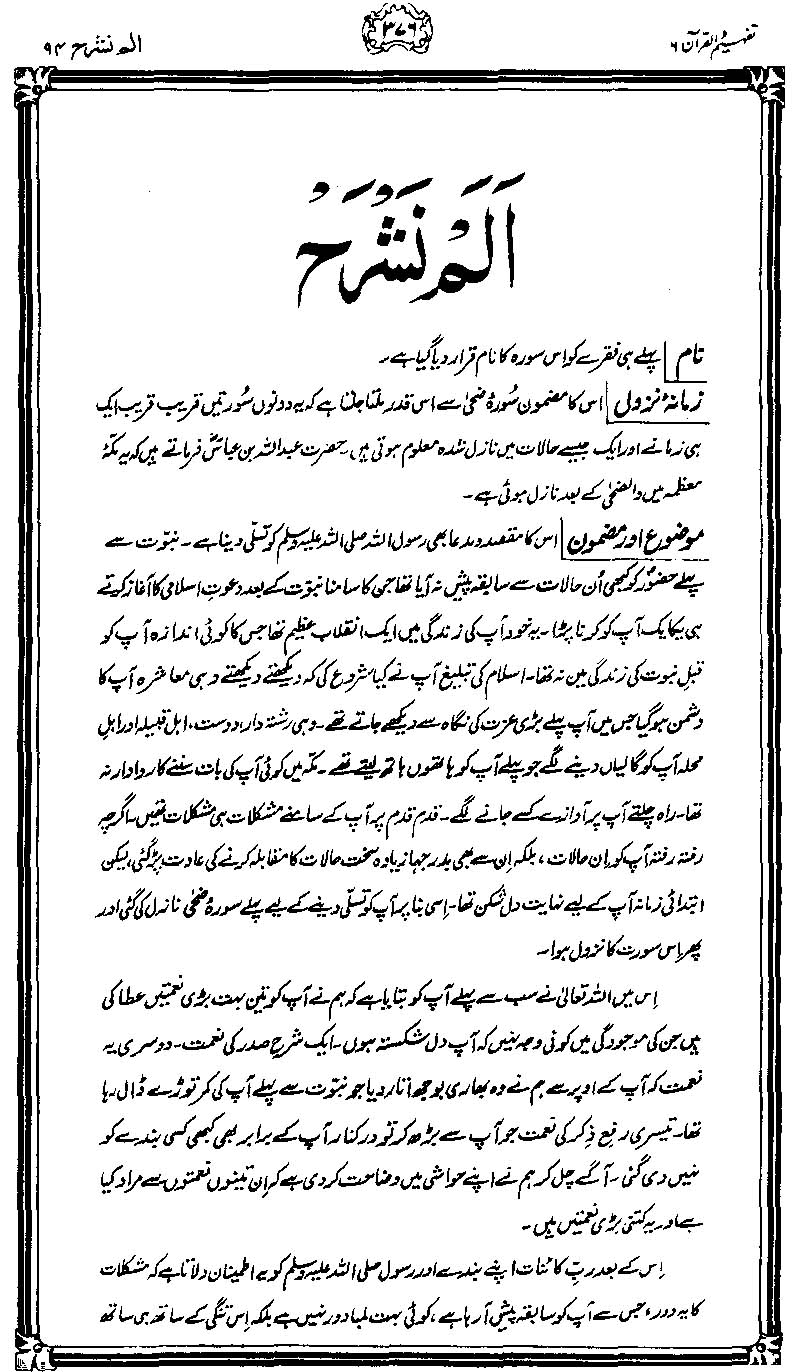 تفہیم القرآن ۶
۳۷۶
الم نشرح ۹۴
اَلَمْ نَشْرَحْ
نام پہلے ہی فقرے کو اس سورہ کا نام قرار دیا گیا ہے۔
زمانۂ نزول اس کا مضمون سُورۂ ضحیٰ سے اس قدر ملتا جلتا ہے کہ یہ دونوں سُورتیں قریب قریب ایک
ہی زمانے اور ایک جیسے حالات میں نازل شدہ معلوم ہوتی ہیں۔ حضرت عبداللہ بن عباسؓ فرماتے ہیں کہ یہ مکّۂ
معظمہ میں والضحیٰ کے بعد نازل ہوئی ہے۔
موضوع اور مضمون اس کا مقصد و مدعا بھی رسول اللہ صلی اللہ علیہ وسلم کو تسلّی دینا ہے۔ نبوّت سے
پہلے حضورؐ کو کبھی اُن حالات سے سابقہ پیش نہ آیا تھا جن کا سامنا نبوّت کے بعد دعوتِ اسلامی کا آغاز کرتے
ہی یکایک آپ کو کرنا پڑا۔ یہ خود آپ کی زندگی میں ایک انقلابِ عظیم تھا جس کا کوئی اندازہ آپ کو
قبلِ نبوت کی زندگی میں نہ تھا۔ اسلام کی تبلیغ آپ نے کیا شروع کی کہ دیکھتے دیکھتے وہی معاشرہ آپ کا
دشمن ہو گیا جس میں آپ پہلے بڑی عزت کی نگاہ سے دیکھے جاتے تھے۔ وہی رشتہ دار، دوست، اہلِ قبیلہ اور اہلِ
محلہ آپ کو گالیاں دینے لگے جو پہلے آپ کو ہاتھوں ہاتھ لیتے تھے۔ مکّہ میں کوئی آپ کی بات سننے کا روادار نہ
تھا۔ راہ چلتے آپ پر آوازے کسے جانے لگے۔ قدم قدم پر آپ کے سامنے مشکلات ہی مشکلات تھیں۔ اگرچہ
رفتہ رفتہ آپ کو اِن حالات، بلکہ اِن سے بھی بدرجہا زیادہ سخت حالات کا مقابلہ کرنے کی عادت پڑ گئی، لیکن
ابتدائی زمانہ آپ کے لیے نہایت دل شکن تھا۔ اِسی بنا پر آپ کو تسلّی دینے کے لیے پہلے سورۂ ضحیٰ نازل کی گئی اور
پھر اِس سورت کا نزول ہوا۔
اِس میں اللہ تعالیٰ نے سب سے پہلے آپ کو بتایا ہے کہ ہم نے آپ کو تین بہت بڑی نعمتیں عطا کی
ہیں جن کی موجودگی میں کوئی وجہ نہیں کہ آپ دل شکستہ ہوں۔ ایک شرحِ صدر کی نعمت۔ دوسری یہ
نعمت کہ آپ کے اوپر سے ہم نے وہ بھاری بوجھ اتار دیا جو نبوّت سے پہلے آپ کی کمر توڑے ڈال رہا
تھا۔ تیسری رفعِ ذِکر کی نعمت جو آپ سے بڑھ کر تو درکنار آپ کے برابر بھی کبھی کسی بندے کو
نہیں دی گئی۔ آگے چل کر ہم نے اپنے حواشی میں وضاحت کر دی ہے کہ اِن تینوں نعمتوں سے مراد کیا
ہے اور یہ کتنی بڑی نعمتیں ہیں۔
اِس کے بعد ربِّ کائنات اپنے بندے اور رسول صلی اللہ علیہ وسلم کو یہ اطمینان دلاتا ہے کہ مشکلات
کا یہ دور، جس سے آپ کو سابقہ پیش آ رہا ہے، کوئی بہت لمبا دور نہیں ہے بلکہ اِس تنگی کے ساتھ ہی ساتھ